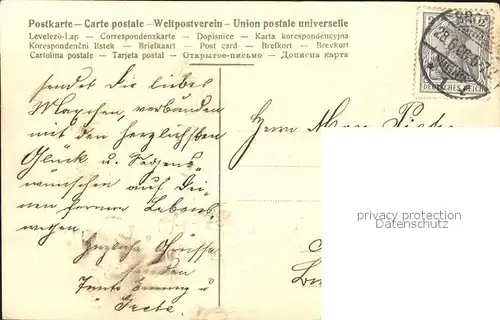 Postkarte – Carte postale – Weltpostverein – Union postale universelle
Levelező-Lap — Correspondenzkarte — Dopisnice — Karta korespondencyjna
Korespondenční lístek — Briefkaart — Post card — Brefkort — Brevkort
Cartolina postale — Tarjeta postal — Открытое-письмо — Дописна карта
DEUTSCHES REICH
sendet Dir liebes
verbunden
mit den herzlichsten
Glück u. Segens-
wünschen auf Dei-
nen fernern Lebens-
wegen.
Herzliche Grüsse
senden
Tante u
Grete.
Herrn
privacy protection
Datenschutz